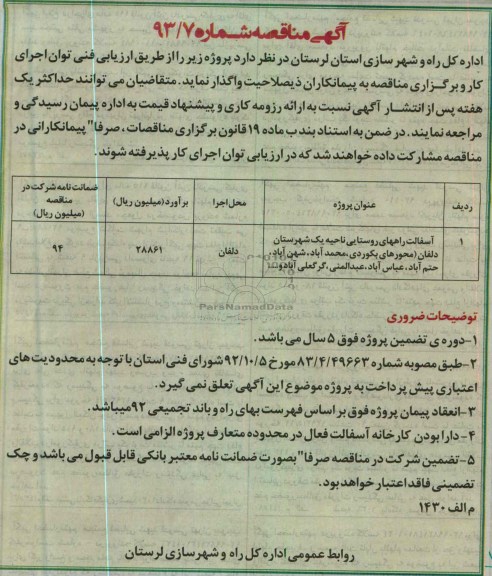 آگهی مناقصه شماره ۹۳/۷
اداره کل راه و شهر سازی استان لرستان در نظر دارد پروژه زیر را از طریق ارزیابی فنی توان اجرای
کار و برگزاری مناقصه به پیمانکاران ذیصلاحیت واگذار نماید. متقاضیان می توانند حداکثر یک
هفته پس از انتشار آگهی نسبت به ارائه رزومه کاری و پیشنهاد قیمت به اداره پیمان رسیدگی و
مراجعه نمایند. در ضمن به استناد بند ب ماده ۱۹ قانون برگزاری مناقصات، صرفا" پیمانکارانی در
مناقصه مشارکت داده خواهند شد که در ارزیابی توان اجرای کار پذیرفته شوند.
ردیف
عنوان پروژه
محل اجرا
برآورد (میلیون ریال)
ضمانت نامه شرکت در
مناقصه
(میلیون ریال)
۱
آسفالت راههای روستایی ناحیه یک شهرستان
دلفان (محورهای بکوردی، محمد آباد، شهن آباد،
حتم آباد، عباس آباد، عبدالمنی، گرگعلی آباد و...
دلفان
۲۸۸۶۱
۹۴
ParsNamadData
توضیحات ضروری
۱-دوره ی تضمین پروژه فوق ۵ سال می باشد.
۲-طبق مصوبه شماره ۸۳/۴/۴۹۶۶۳ مورخ ۹۲/۱۰/۵ شورای فنی استان با توجه به محدودیت های
اعتباری پیش پرداخت به پروژه موضوع این آگهی تعلق نمی گیرد.
۳-انعقاد پیمان پروژه فوق بر اساس فهرست بهای راه و باند تجمیعی ۹۲ میباشد.
۴- دارا بودن کارخانه آسفالت فعال در محدوده متعارف پروژه الزامی است.
۵-تضمین شرکت در مناقصه صرفا" بصورت ضمانت نامه معتبر بانکی قابل قبول می باشد و چک
تضمینی فاقد اعتبار خواهد بود.
م الف ۱۴۳۰
روابط عمومی اداره کل راه و شهر سازی لرستان